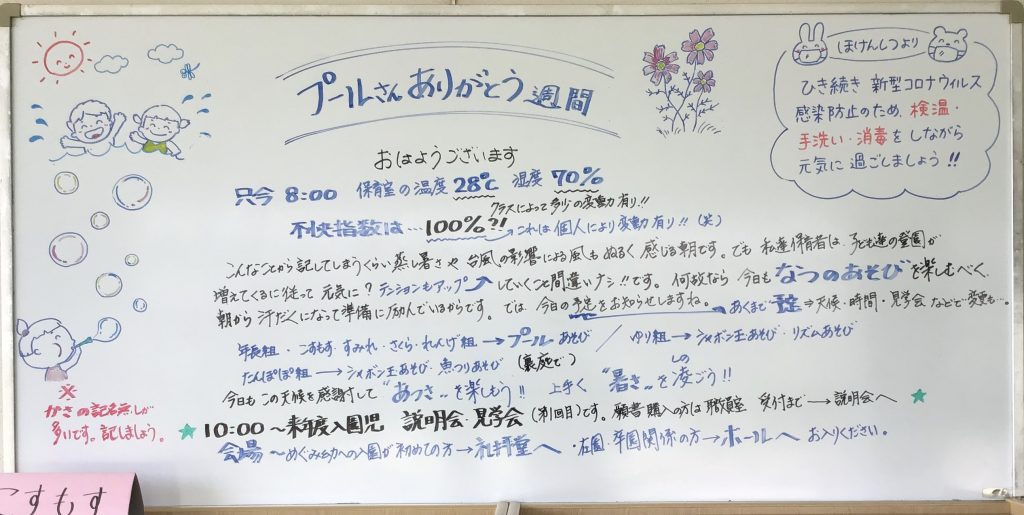 プールさんありがとう週間
ほけんしつより
ひき続き 新型コロナウィルス
感染防止のため、検温・
手洗い・消毒をしながら
元気に過ごしましょう!!
おはようございます
只今 8:00 保育室の温度 28℃ 湿度 70%
クラスによって多少の変動有り!!
不快指数は…100%?! これは個人により変動有り!! (笑)
こんなことから記してしまうくらい蒸し暑さや台風の影響による風もぬるく感じる朝です。でも私達保育者は、子ども達の登園が
増えてくるに従って 元気に?テンションもアップしていくこと間違いナシ!!です。何故なら今日もなつのあそびを楽しむべく、
朝から汗だくになって準備に励んでいるからです。では、今日の予定をお知らせしますね。 あくまで予定⇒天候・時間・見学会などで変更も…。
年長組・こすもす・すみれ・さくら・れんげ組→プールあそび / ゆり組→シャボン玉あそび・リズムあそび
たんぽぽ組→シャボン玉あそび・魚つりあそび (裏庭で)
今日もこの天候を感謝して "あつさ"を楽しもう!! 上手く "暑さ"を凌ごう!!
しの
※
かさの記名無しが
多いです。記しましょう。
★10:00~来年度入園児 説明会・見学会 です。願書購入の方は職員室 受付まで→説明会へ ★
会場~めぐみ幼への入園が初めての方→礼拝堂へ ・在園・卒園関係の方→ホールへ お入りください。
こすもす